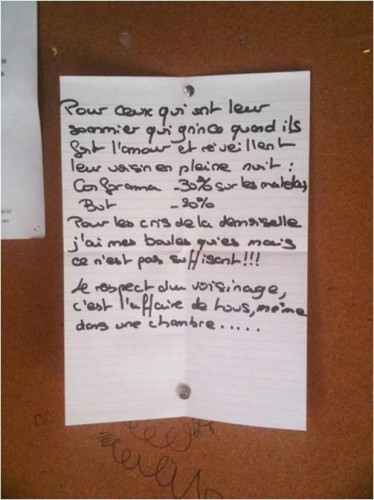 Pour ceux qui ont leur
sommier qui grince quand ils
font l'amour et réveillent
leur voisin en pleine nuit :
Conforama -30% sur les matelas
But -20%
Pour les cris de la demoiselle
j'ai mes boules quies mais
ce n'est pas suffisant!!!
Le respect du voisinage,
c'est l'affaire de tous, même
dans une chambre.....